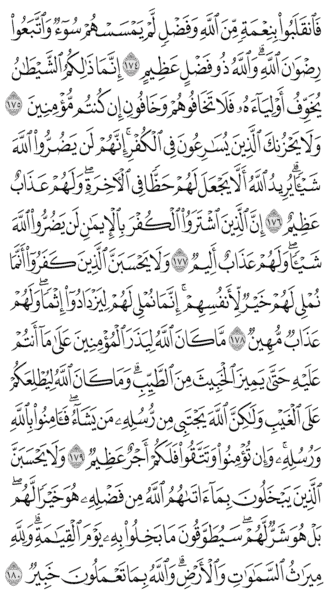 فَٱنقَلَبُوا۟ بِنِعْمَةٍ مِّنَ ٱللَّهِ وَفَضْلٍ لَّمْ يَمْسَسْهُمْ سُوٓءٌ وَٱتَّبَعُوا۟
رِضْوَٰنَ ٱللَّهِ ۗ وَٱللَّهُ ذُو فَضْلٍ عَظِيمٍ ١٧٤ إِنَّمَا ذَٰلِكُمُ ٱلشَّيْطَٰنُ
يُخَوِّفُ أَوْلِيَآءَهُۥ فَلَا تَخَافُوهُمْ وَخَافُونِ إِن كُنتُم مُّؤْمِنِينَ ١٧٥
وَلَا يَحْزُنكَ ٱلَّذِينَ يُسَٰرِعُونَ فِى ٱلْكُفْرِ ۚ إِنَّهُمْ لَن يَضُرُّوا۟ ٱللَّهَ
شَيْـًٔا ۗ يُرِيدُ ٱللَّهُ أَلَّا يَجْعَلَ لَهُمْ حَظًّا فِى ٱلْءَاخِرَةِ ۖ وَلَهُمْ عَذَابٌ
عَظِيمٌ ١٧٦ إِنَّ ٱلَّذِينَ ٱشْتَرَوُا۟ ٱلْكُفْرَ بِٱلْإِيمَٰنِ لَن يَضُرُّوا۟ ٱللَّهَ
شَيْـًٔا ۖ وَلَهُمْ عَذَابٌ أَلِيمٌ ١٧٧ وَلَا يَحْسَبَنَّ ٱلَّذِينَ كَفَرُوٓا۟ أَنَّمَا
نُمْلِى لَهُمْ خَيْرٌ لِّأَنفُسِهِمْ ۚ إِنَّمَا نُمْلِى لَهُمْ لِيَزْدَادُوٓا۟ إِثْمًا ۚ وَلَهُمْ
عَذَابٌ مُّهِينٌ ١٧٨ مَّا كَانَ ٱللَّهُ لِيَذَرَ ٱلْمُؤْمِنِينَ عَلَىٰ مَآ أَنتُمْ
عَلَيْهِ حَتَّىٰ يَمِيزَ ٱلْخَبِيثَ مِنَ ٱلطَّيِّبِ ۗ وَمَا كَانَ ٱللَّهُ لِيُطْلِعَكُمْ
عَلَى ٱلْغَيْبِ وَلَٰكِنَّ ٱللَّهَ يَجْتَبِى مِن رُّسُلِهِۦ مَن يَشَآءُ ۖ فَـَٔامِنُوا۟ بِٱللَّهِ
وَرُسُلِهِۦ ۚ وَإِن تُؤْمِنُوا۟ وَتَتَّقُوا۟ فَلَكُمْ أَجْرٌ عَظِيمٌ ١٧٩ وَلَا يَحْسَبَنَّ
ٱلَّذِينَ يَبْخَلُونَ بِمَآ ءَاتَىٰهُمُ ٱللَّهُ مِن فَضْلِهِۦ هُوَ خَيْرًا لَّهُم ۖ
بَلْ هُوَ شَرٌّ لَّهُمْ ۖ سَيُطَوَّقُونَ مَا بَخِلُوا۟ بِهِۦ يَوْمَ ٱلْقِيَٰمَةِ ۗ وَلِلَّهِ
مِيرَٰثُ ٱلسَّمَٰوَٰتِ وَٱلْأَرْضِ ۗ وَٱللَّهُ بِمَا تَعْمَلُونَ خَبِيرٌ ١٨٠